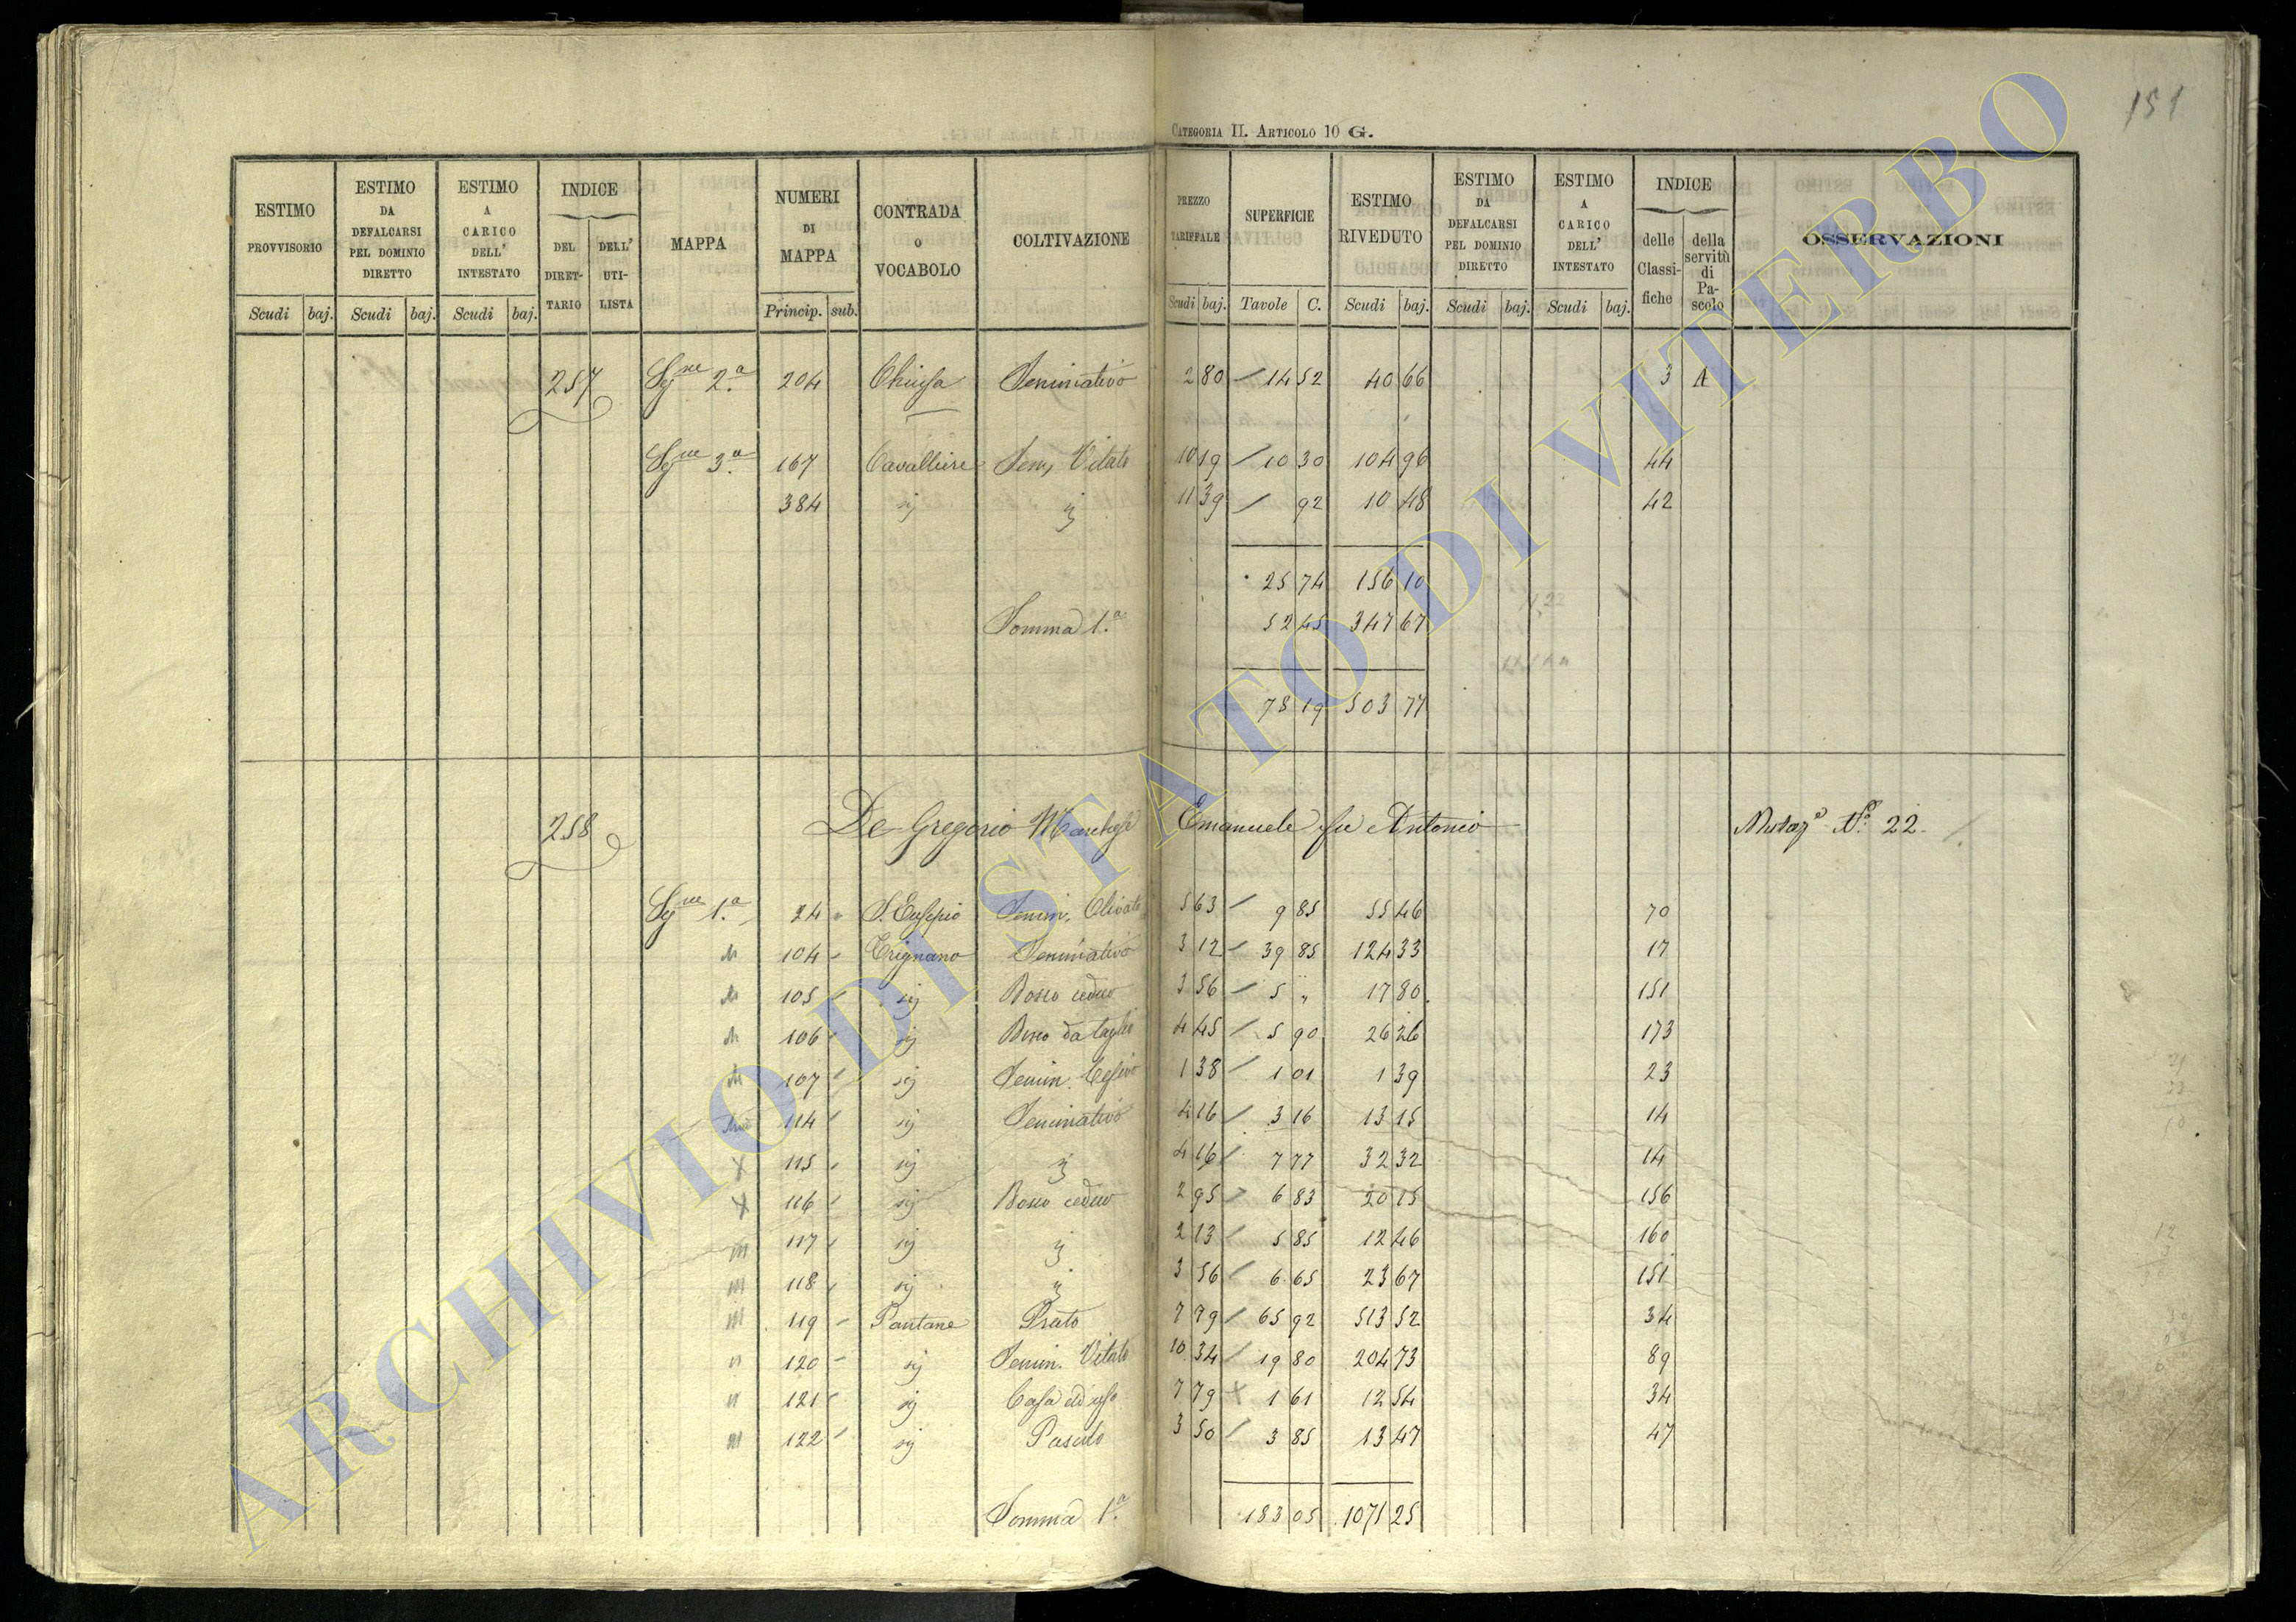 151
CATEGORIA II. ARTICOLO 10 G.
ESTIMO PROVVISORIO | ESTIMO DA DEFALCARSI PEL DOMINIO DIRETTO | ESTIMO A CARICO DELL' INTESTATO | INDICE | MAPPA | NUMERI DI MAPPA | CONTRADA O VOCABOLO | COLTIVAZIONE | PREZZO TARIFFALE | SUPERFICIE | ESTIMO RIVEDUTO | ESTIMO DA DEFALCARSI PEL DOMINIO DIRETTO | ESTIMO A CARICO DELL' INTESTATO | INDICE | OSSERVAZIONI
DEL DIRET-TARIO | DELL' UTI-LISTA | delle Classi-fiche | della servitù di Pa-scolo
Scudi | baj. | Scudi | baj. | Scudi | baj. | Princip. | sub. | Scudi | baj. | Tavole | C. | Scudi | baj. | Scudi | baj. | Scudi | baj.
257 Sez.ne 2.a 204 Chiusa Seminativo 2 80 14 52 40 66 3 A
Sez.ne 3.a 167 Cavalliere Sem. Vitato 10 19 10 30 104 96 44
384 " " 11 39 92 10 48 42
25 74 156 10
Somma 1.a 52 45 347 67
78 19 503 77
258 De Gregorio Marchese Emanuele fu Antonio Mutaz.e N.o 22
Sez.ne 1.a 24 S. Eusepio Semin. Olivato 5 63 9 85 55 46 70
104 Trignano Seminativo 3 12 39 85 124 33 17
105 " Bosco ceduo 3 56 5 " 17 80 151
106 " Bosco da taglio 4 45 5 90 26 26 173
107 " Semin. Cespivo 1 38 1 01 1 39 23
114 " Seminativo 4 16 3 16 13 15 14
115 " " 4 16 7 77 32 32 14
116 " Bosco ceduo 2 95 6 83 20 15 156
117 " " 2 13 5 85 12 46 160
118 " " 3 56 6 65 23 67 151
119 Pantane Prato 7 79 65 92 513 52 34
120 " Semin. Vitato 10 34 19 80 204 73 89
121 " Casa ad uso 7 79 1 61 12 54 34
122 " Pascolo 3 50 3 85 13 47 47
Somma 1.a 183 05 1071 25
ARCHIVIO DI STATO DI VITERBO